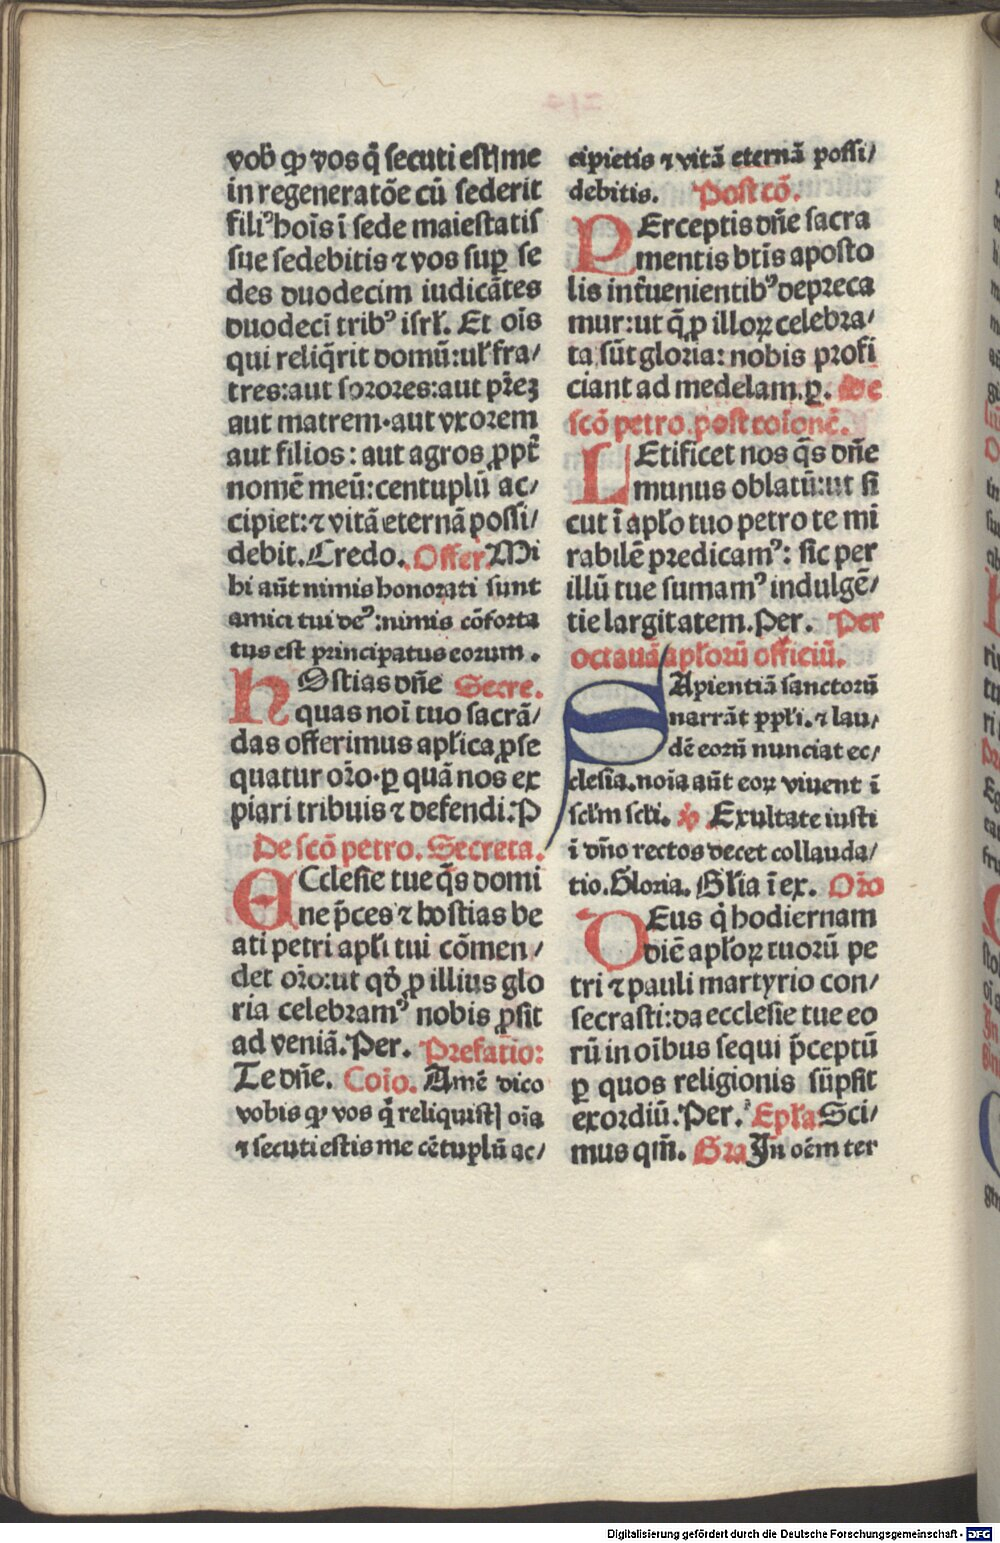 vob̄ ꝙ vos q̄ secuti estꝭ me
in regeneratōe cū sederit
filiꝰ hoīs ī sede maiestatis
sue sedebitis ⁊ vos suꝑ se
des duodecim iudicātes
duodecī tribꝰ isrl̄. Et oīs
qui reliq̄rit domū: ul̓ fra/
tres: aut sorores: aut pr̄eꝫ
aut matrem. aut vxorem
aut filios: aut agros ꝓpt̄
nomē meū: centuplū ac/
cipiet: ⁊ vitā eternā possi/
debit. Credo. Offer. Mi
hi aūt nimis honorati sunt
amici tui deꝰ: nimis cōforta
tus est principatus eorum.
HOstias dn̄e Secre.
quas noī tuo sacrā/
das offerimus apl̓ica ꝓse
quatur or̄o. ꝑ quā nos ex
piari tribuis ⁊ defendi: P
De scō petro. Secreta.
ECclesie tue q̄s domi
ne p̄ces ⁊ hostias be
ati petri apl̓i tui cōmen/
det or̄o: ut qđ ꝓ illius glo
ria celebramꝰ nobis ꝓsit
ad veniā. Per. Prefatio:
Te dn̄e. Coīo. Amē dico
vobis ꝙ vos q̄ reliquistꝭ oīa
⁊ secuti estis me cētuplū ac/
cipietis ⁊ vitā eternā possi/
debitis. Postcō.
PErceptis dn̄e sacra
mentis btīs aposto
lis int̄uenientibꝰ depreca
mur: ut q̄ ꝓ illoꝝ celebra/
ta sūt gloria: nobis profi
ciant ad medelam. ꝑ. De
scō petro. postcoīonē.
LEtificet nos q̄s dn̄e
munus oblatū: ut si
cut ī apl̓o tuo petro te mi
rabilē predicamꝰ: sic per
illū tue sumamꝰ indulgē/
tie largitatem. Per. Per
octauā apl̓orū officiū.
SApientiā sanctorū
narrāt ppl̓i. ⁊ lau/
dē eorū nunciat ec/
clesia. noīa aūt eoꝝ viuent ī
scl̓m scl̓i. ꝟ Exultate iusti
ī dn̄o rectos decet collauda/
tio. Gloria. Gl̓ia ī ex. Or̄o
DEus q̇ hodiernam
diē apl̓oꝝ tuorū pe
tri ⁊ pauli martyrio con/
secrasti: da ecclesie tue eo
rū in oībus sequi p̄ceptū
ꝑ quos religionis sūpsit
exordiū. Per. Epl̓a Sci/
mus qm̄. Gra In oēm ter
Digitalisierung gefördert durch die Deutsche Forschungsgemeinschaft - DFG